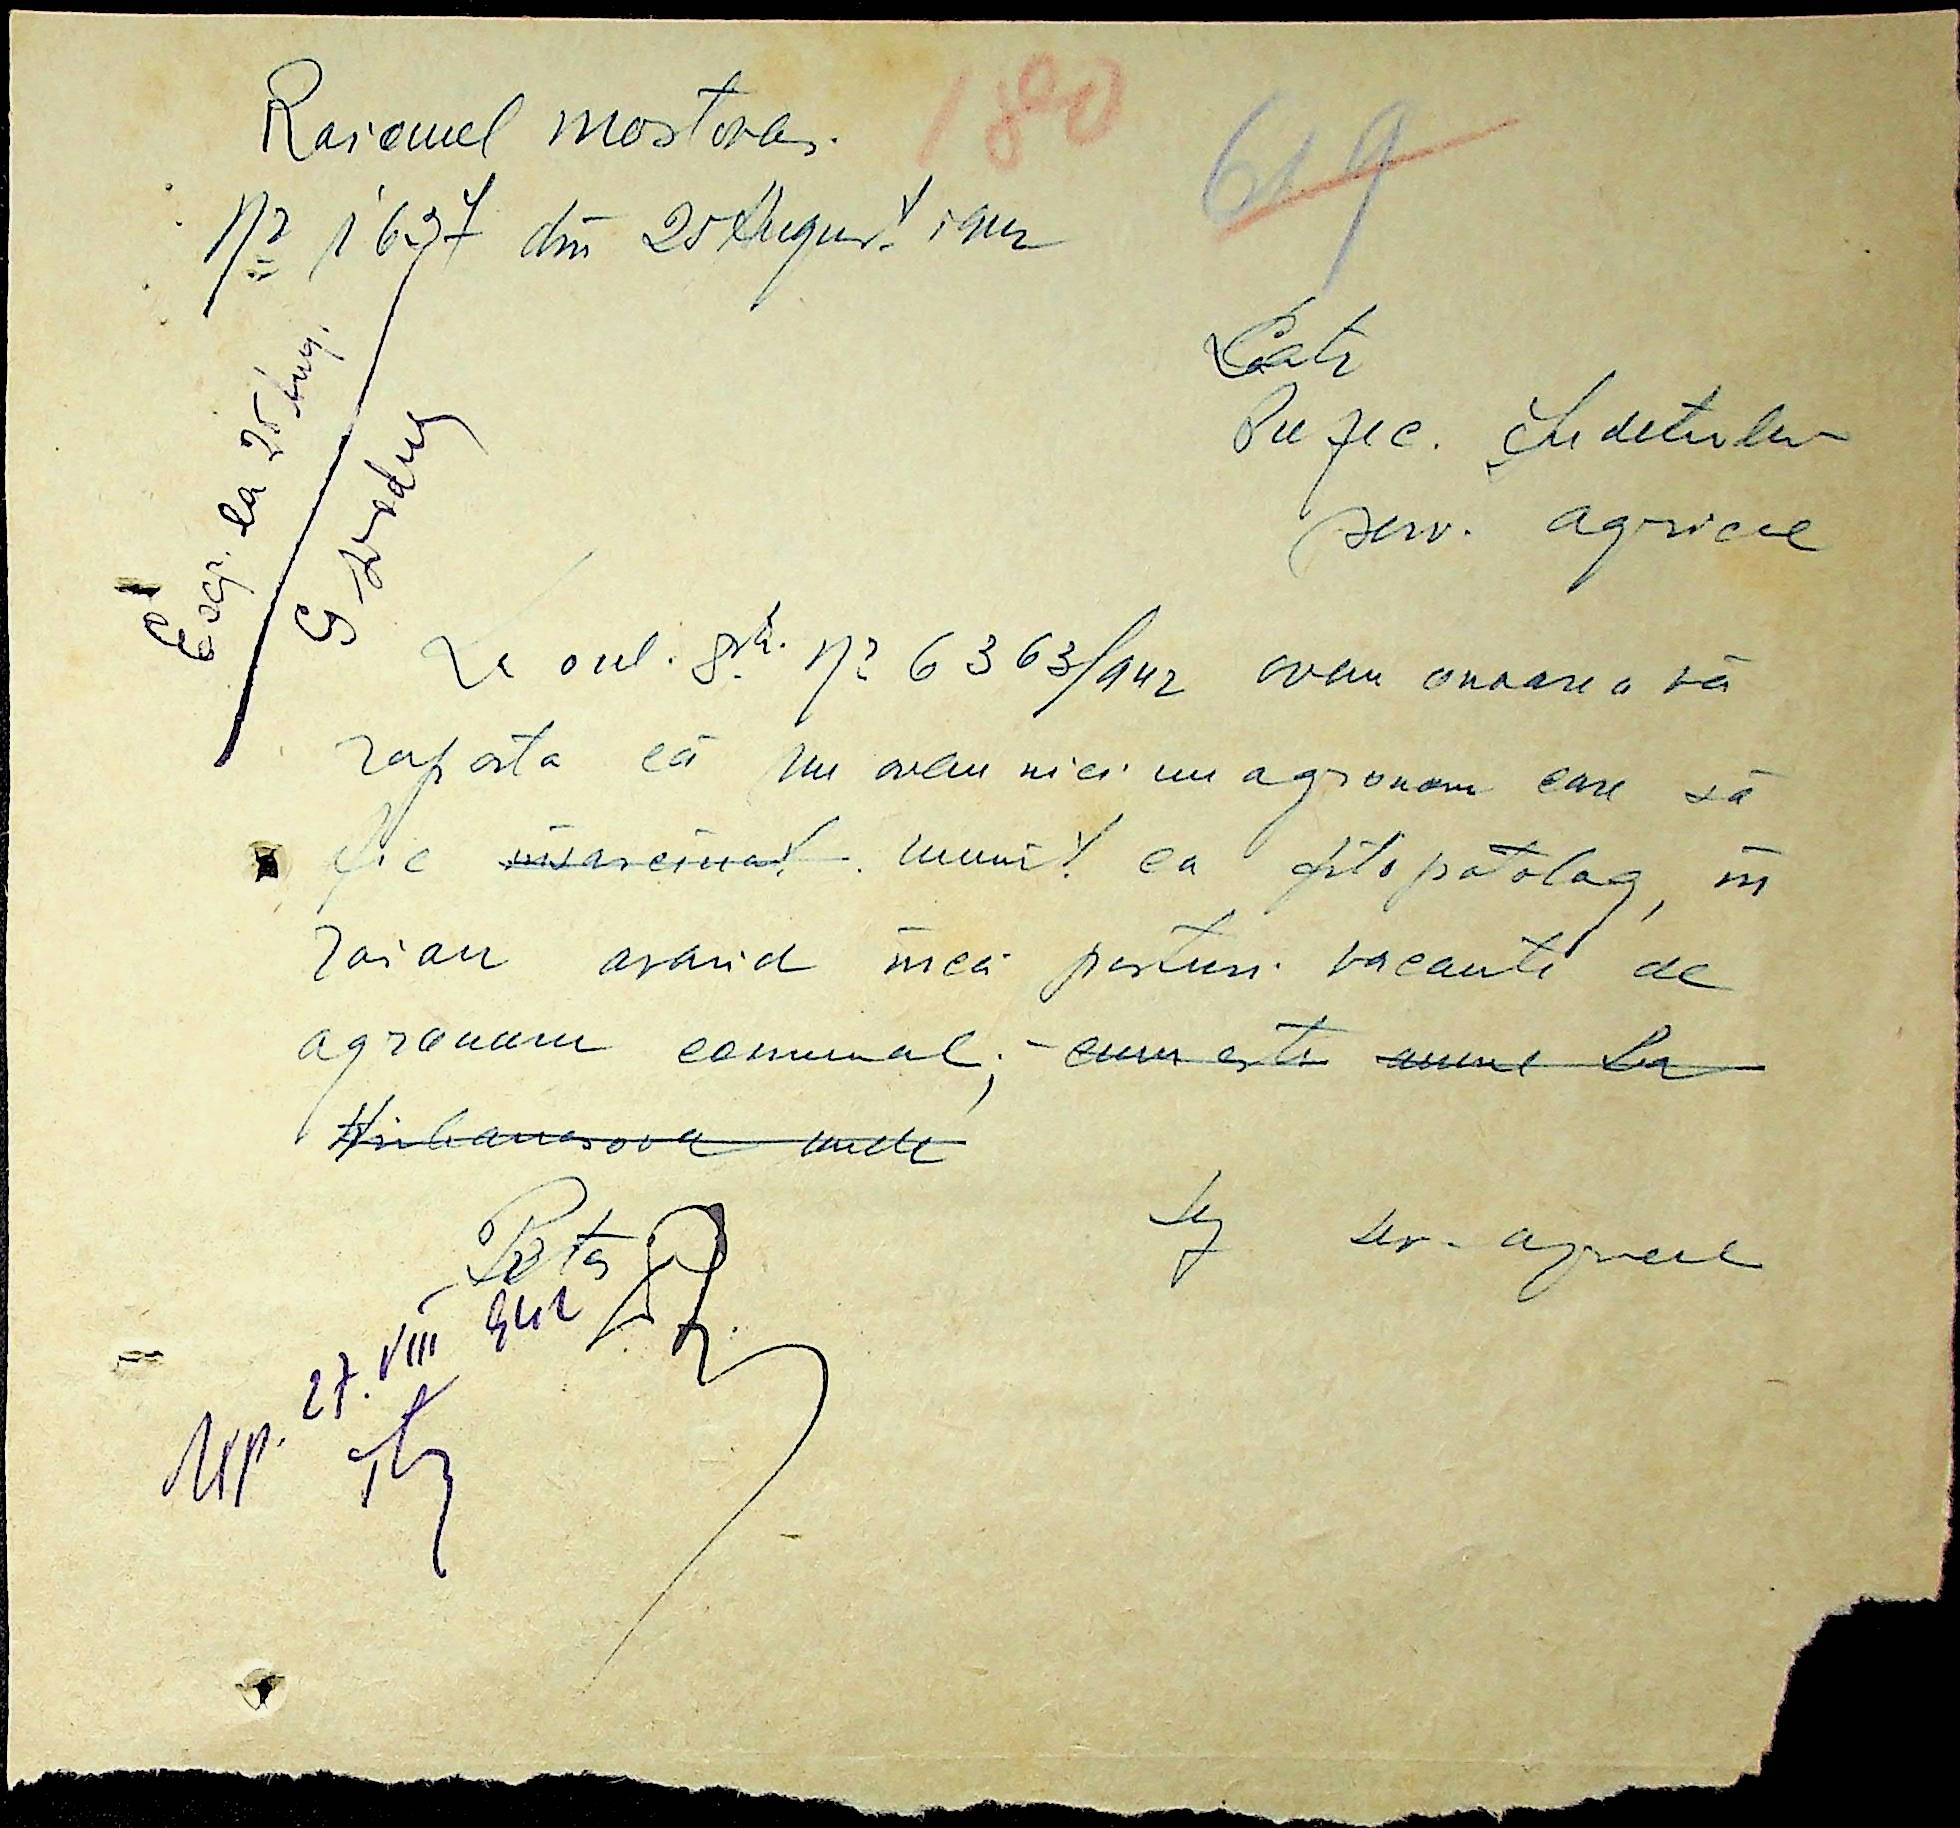 Raionul Mostovoi.
180
619
Nr 1637 din 25 August 1942
Catr
Prefec. Judetului
serv. agricol
Exp. la 25 Aug.
La ord. Dvs. Nr 6363/942 avem onoarea vă
raporta că nu avem nici un agronom care să
fie insarcinat. numit ca fitopatolog, în
raion avand încă posturi vacante de
agronom comunal; - cum este anume La
unde
Pretor
Șeg serv. agricol
27. VIII 942